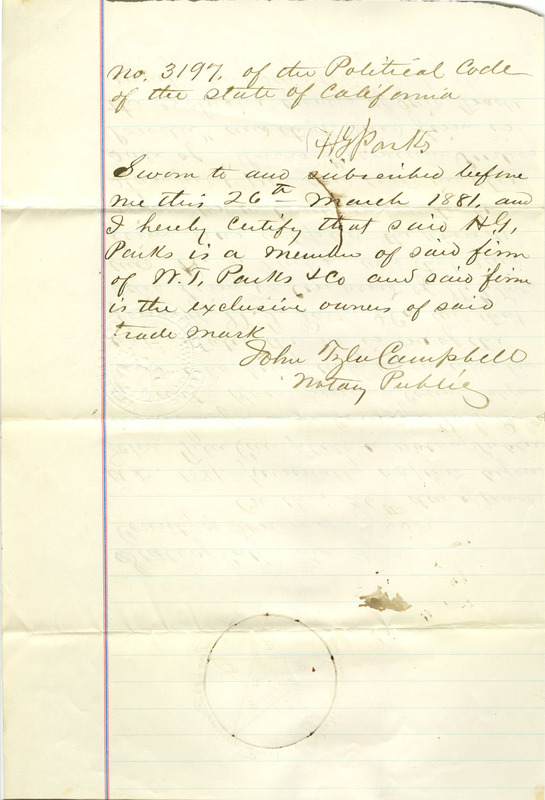 No. 3197. of the Political Code
of the state of California
H G Parks
Sworn to and subscribed before
me this 26th March 1881, and
I hereby certify that said H.G,
Parks is a member of said firm
of W. T, Parks & Co and said firm
is the exclusive owners of said
trade mark
John Tyler Campbell
Notary Public